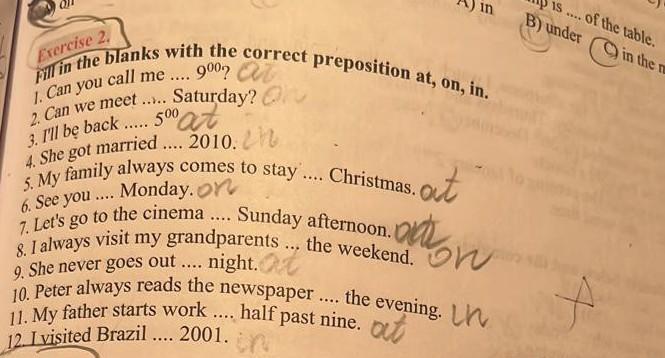 A) in
mp is .... of the table.
B) under
C) in the
Exercise 2.
Fill in the blanks with the correct preposition at, on, in.
1. Can you call me .... 9⁰⁰? at
2. Can we meet ..... Saturday? on
3. I'll be back ..... 5⁰⁰ at
4. She got married .... 2010. in
5. My family always comes to stay .... Christmas. at
6. See you .... Monday. on
7. Let's go to the cinema .... Sunday afternoon.
8. I always visit my grandparents ... the weekend. on
9. She never goes out .... night. at
10. Peter always reads the newspaper .... the evening. in
11. My father starts work .... half past nine. at
12. I visited Brazil .... 2001. in